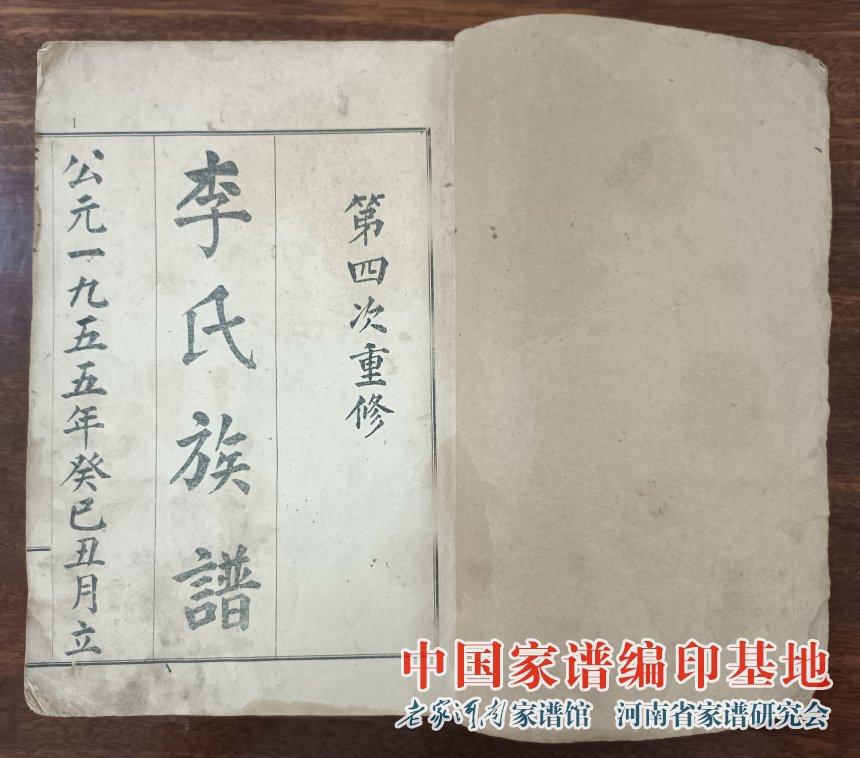 第四次重修
李氏族譜
公元一九五五年癸巳丑月立
1
中国家谱编印基地
老家河南家谱馆 河南省家谱研究会